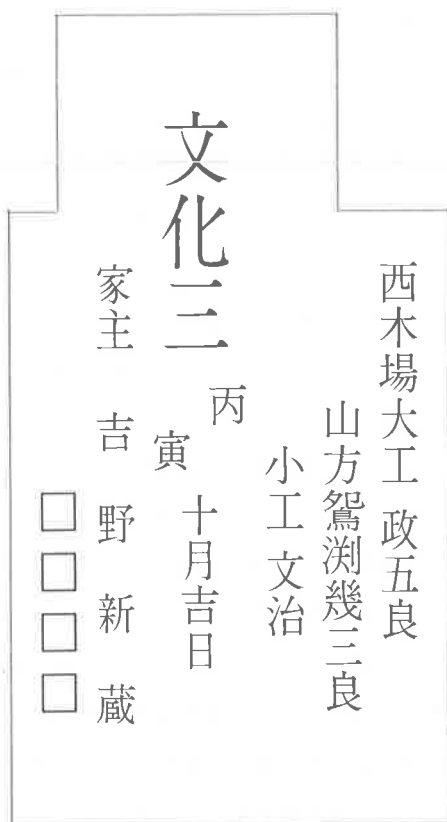 西木場大工 政五良
山方鴛渕幾三良
小工 文治
文化三 丙寅 十月吉日
家主 吉野新蔵
□□□□